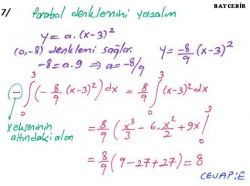 BAYCEBİR
7/ Parabol denklemini yazalım
y = a.(x-3)²
(0,-8) denklemi sağlar.
-8 = a.9 ⇒ a = -8/9
y = -8/9 (x-3)²
-∫₀³ (-8/9 (x-3)²) dx = 8/9 ∫₀³ (x-3)² dx
x ekseninin altındaki alan
= 8/9 (x³/3 - 6.x²/2 + 9x) |₀³
= 8/9 (9-27+27) = 8
CEVAP: E